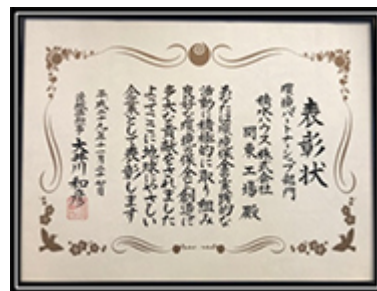 表彰状
環境パートナーシップ部門
積水ハウス株式会社
関東工場 殿
あなたは環境保全の実践的な
活動に積極的に取り組み
良好な環境の保全と創造に
多大な貢献をされました
よってここに地球にやさしい
企業として表彰します
平成二十九年十一月二十七日
茨城県知事 大井川和彦